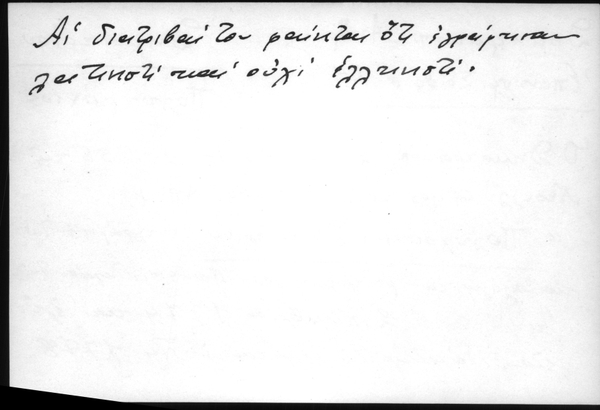 Αἱ διατριβαί του φαίνεται ὅτι ἐγράφησαν
λατινιστί καί οὐχί ἑλληνιστί.